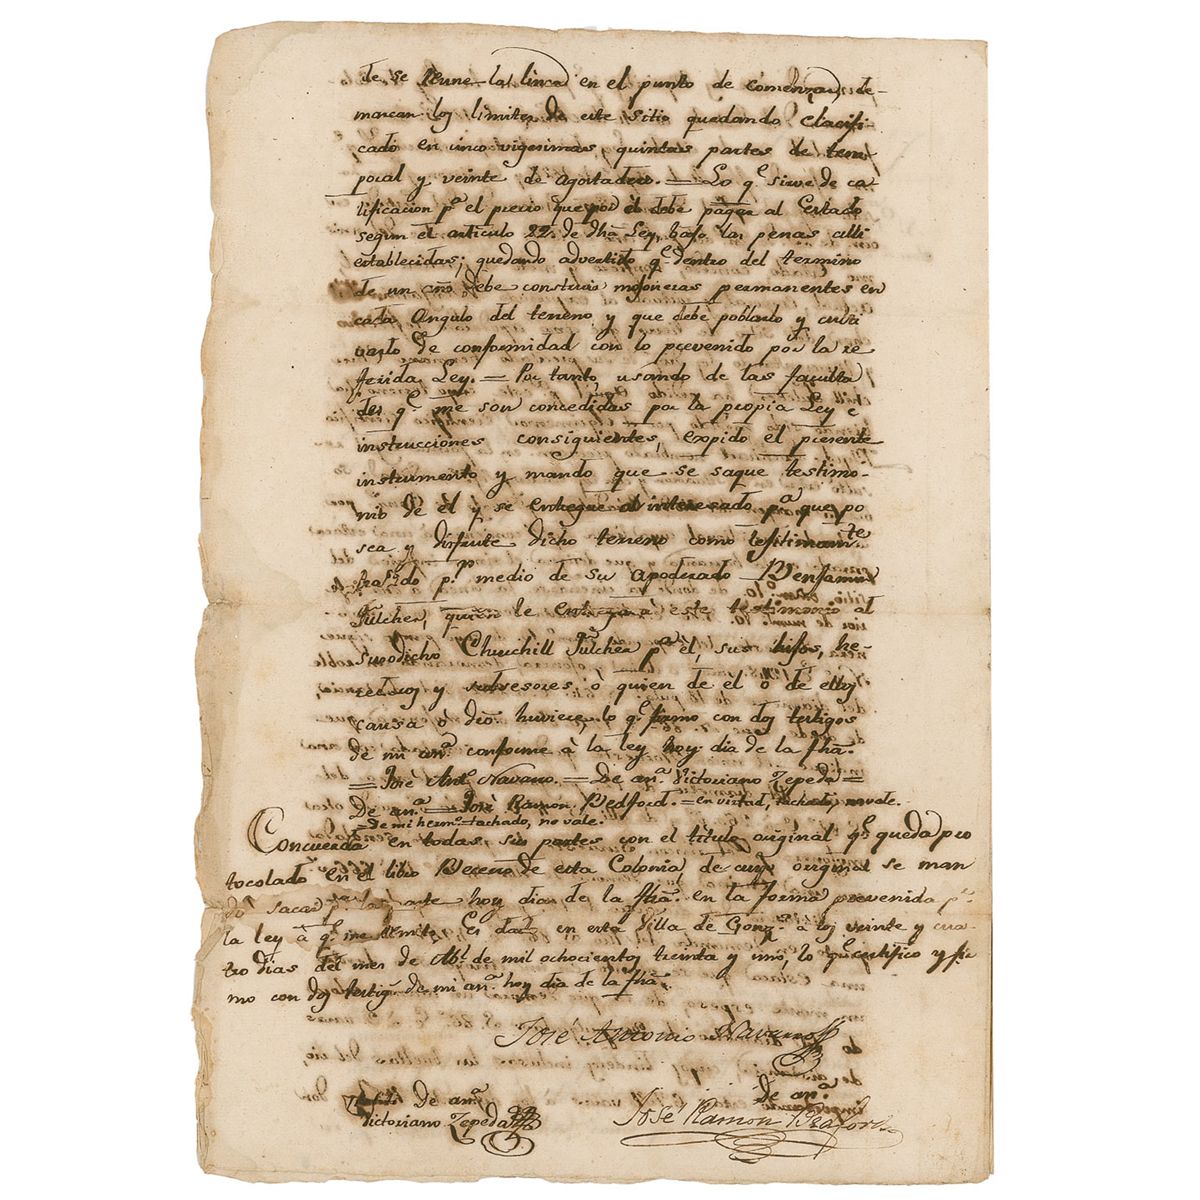 de se reune la linea en el punto de comenzar, de-
marcan los limites de este sitio quedando clacifi-
cado en cinco vigesimas, quintas partes de tem-
poral y veinte de agostadero. = Lo q.e sirve de ca-
lificacion p.a el precio que por él debe pagar al Estado
segun el articulo 22. de dha Ley, bajo las penas alli
establecidas; quedando advertido q.e dentro del termino
de un año debe construir mojoneras permanentes en
cada angulo del terreno y que debe poblarlo y culti
varlo de conformidad con lo prevenido por la re
ferida Ley. = Por tanto, usando de las faculta
des q.e me son concedidas por la propia Ley e
instrucciones consiguientes, expido el presente
instrumento y mando que se saque testimo-
nio de él y se entregue al interesado p.a que po
sea y disfrute dicho terreno como lejitimam.te
p.r medio de su apoderado Benjamin
Fulcher, quien le entregará este testimonio al
susodicho Churchill Fulcher p.a el, sus hijos, he-
rederos y subsesores, ó quien de el ó de ellos
causa ó dro. huviere, lo q.e firmo con dos testigos
de mi as.a conforme à la ley hoy dia de la fha.
= José Ant.o Navarro. = De as.a Victoriano Zepeda =
De as.a = José Ramon Bedford. = en virtad, tachado, no vale.
= de mi herm.o tachado, no vale.
Concuerda en todas sus partes con el titulo original q.e queda pro
tocolado en el libro Becerro de esta Colonia, de cuyo original se man
dó sacar p.a la parte hoy dia de la fha. en la forma prevenida p.r
la ley à q.e me remito. Es dado en esta Villa de Gonz.s a los veinte y cua-
tro dias del mes de Ab.l de mil ochocientos treinta y uno, lo q.e certifico y fir
mo con dos testig.s de mi as.a hoy dia de la fha.
José Antonio Navarro
De as.a
Victoriano Zepeda
De as.a
José Ramon Bedford